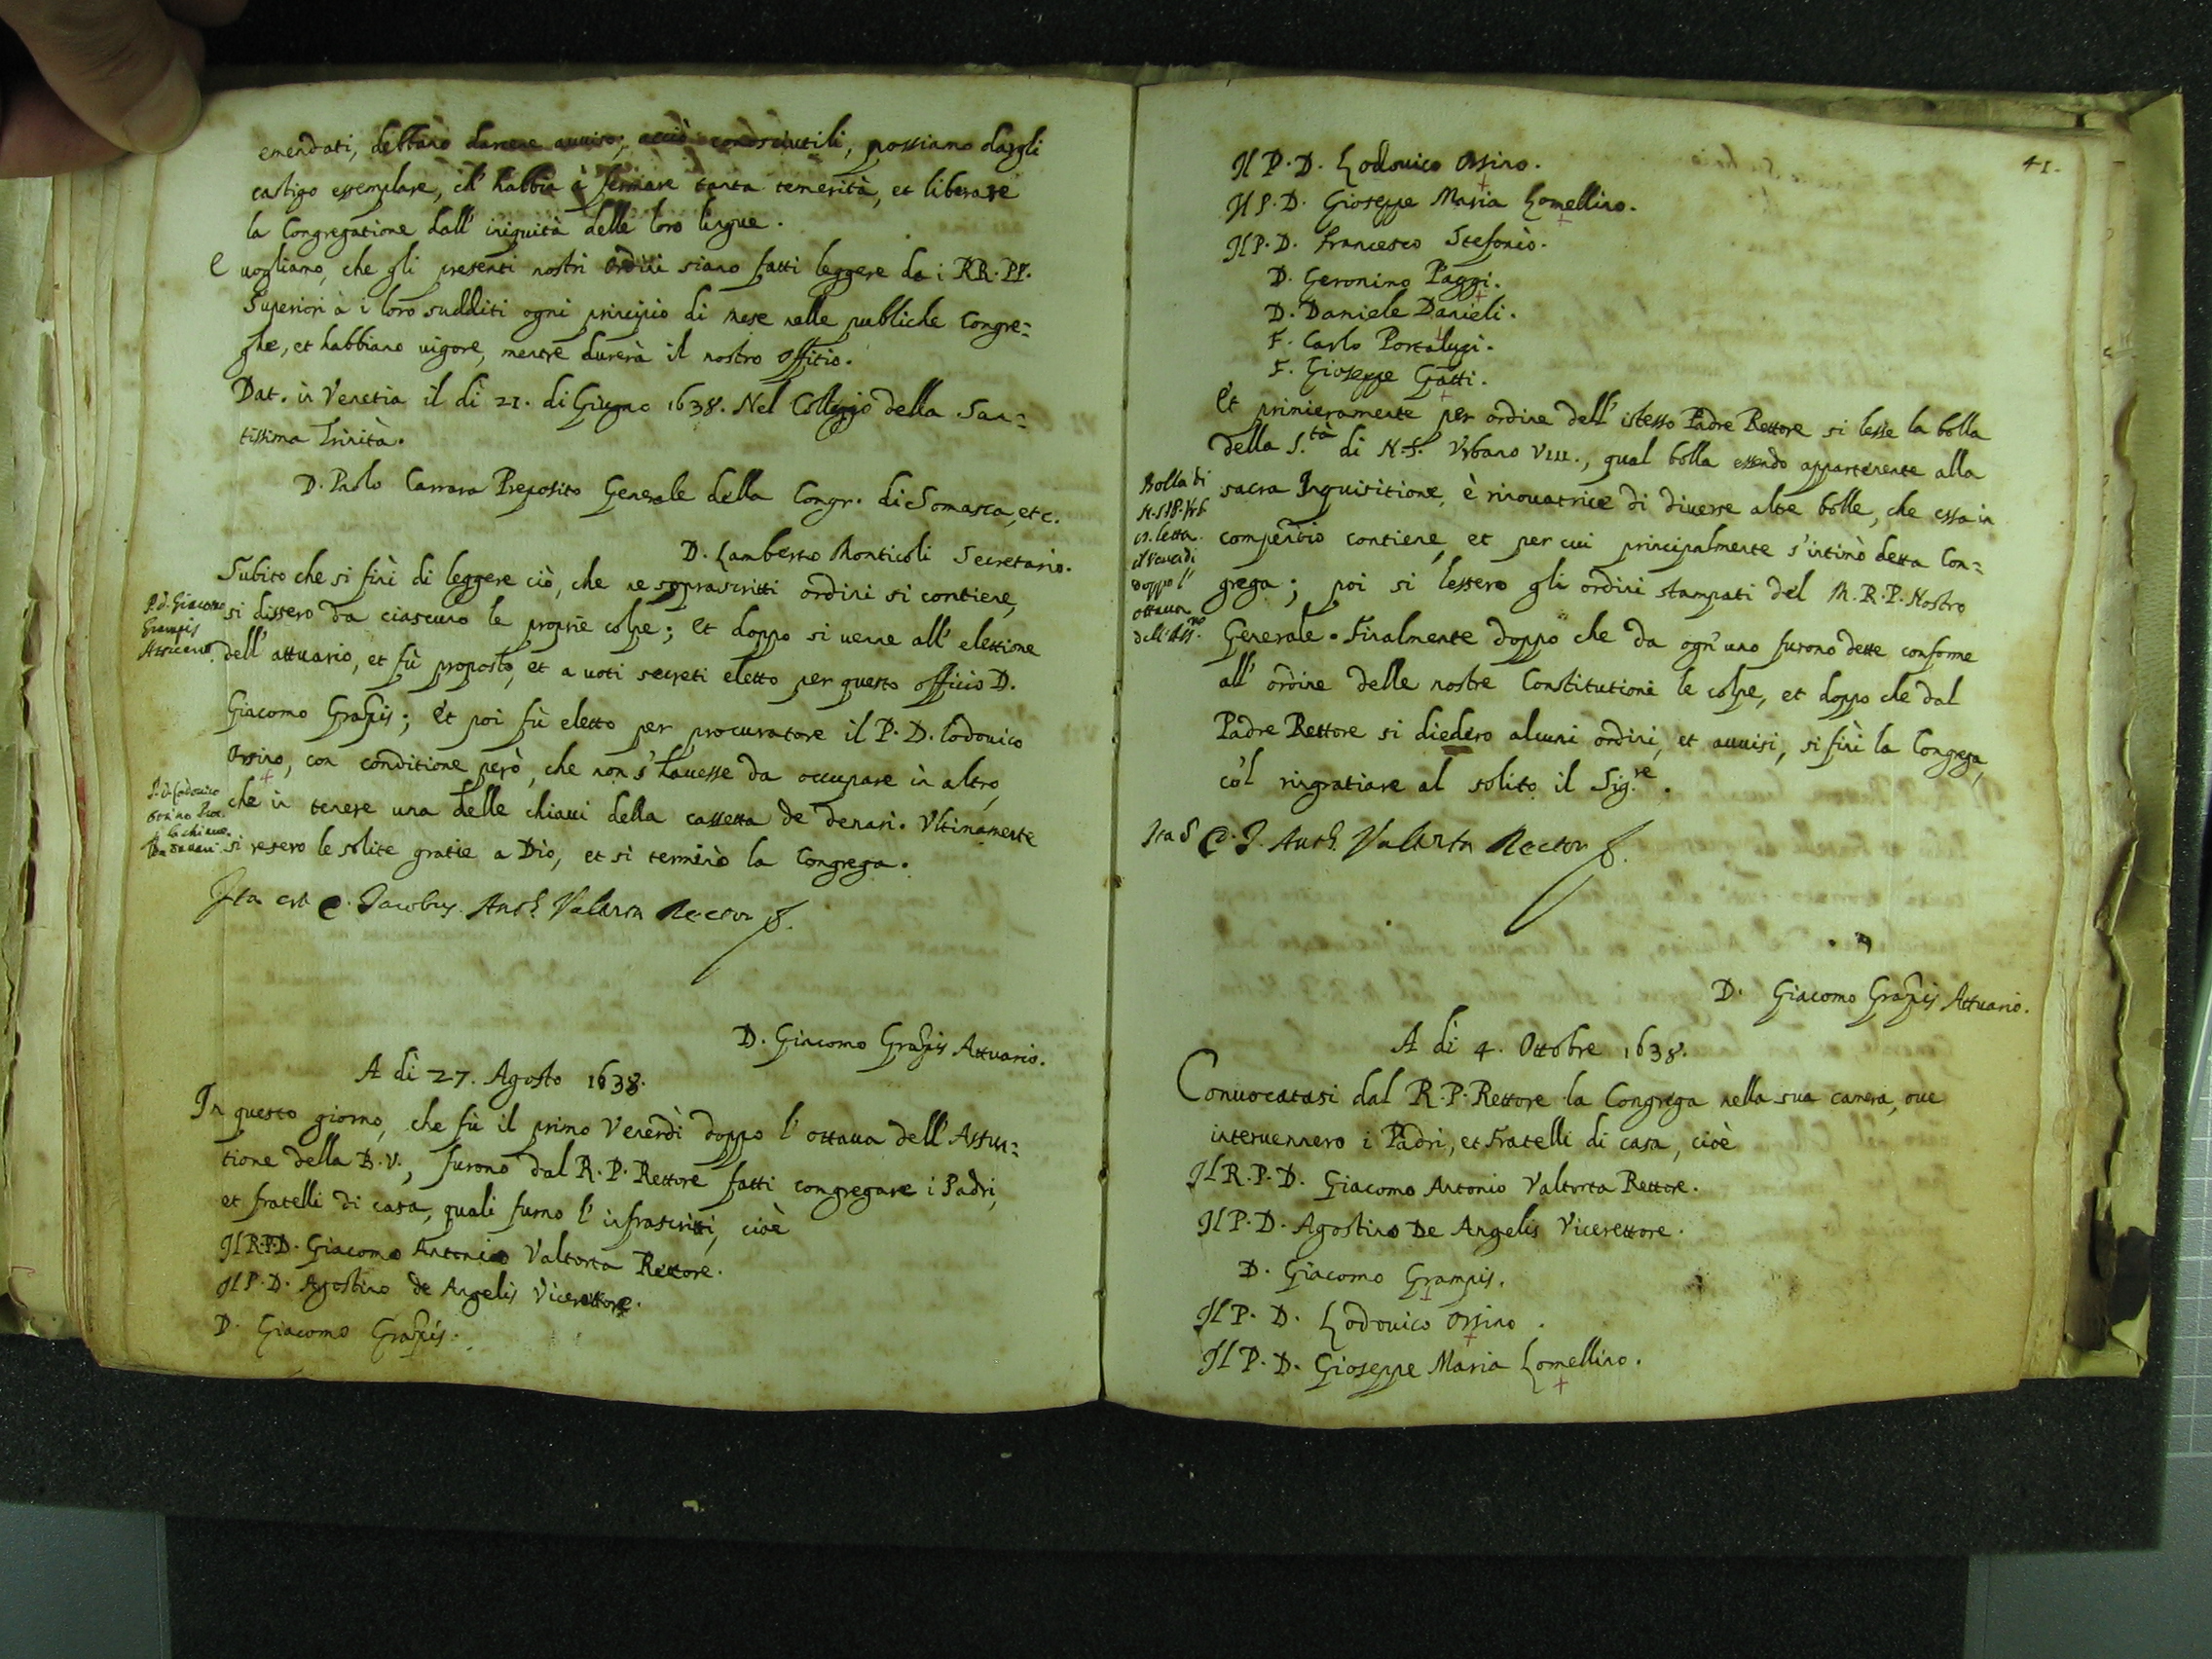 emendati, debbano darcene auuiso; acciò conosciutili, possiamo dargli
castigo essemplare, ch' habbia à fermare tanta temerità, et liberare
la Congregatione dall' iniquità delle loro lingue.
E uogliamo, che gli presenti nostri ordini siano fatti leggere da i RR. PP.
Superiori à i loro sudditi ogni principio di mese nelle publiche Congre=
ghe, et habbiano uigore, mentre durerà il nostro offitio.
Dat. in Venetia il di 21. di Giugno 1638. Nel Collegio della San=
tissima Trinità.
D. Paolo Carrara Preposito Generale della Congr. di Somasca, etc.
D. Lamberto Monticoli Secretario.
Subito che si finì di leggere ciò, che ne soprascritti ordini si contiene,
si dissero da ciascuno le proprie colpe; et doppo si uenne all' elettione
dell' attuario, et fù proposto, et a uoti secreti eletto per questo officio D.
Giacomo Grãpis; et poi fù eletto per procuratore il P. D. Lodouico
Orsino, con conditione però, che non s' hauesse da occupare in altro,
che in tenere una delle chiaui della cassetta de denari. Vltimamente
si resero le solite gratie a Dio, et si terminò la Congrega.
P. d. Giacomo
Grampis
Attuario.
P. D. Lodouico
Orsino Proc.
la chiaue
denari
Ita est D. Jacobus Anth. Valtorta Rector
D. Giacomo Grãpis Attuario.
A di 27. Agosto 1638.
In questo giorno, che fù il primo Venerdì doppo l' ottaua dell' Assun=
tione della B. V., furono dal R. P. Rettore fatti congregare i Padri,
et fratelli di casa, quali furno l' infrascritti, cioè
Il R. P. D. Giacomo Antonio Valtorta Rettore.
Il P. D. Agostino de Angelis Vicerettore.
D. Giacomo Grãpis.
41.
Il P. D. Lodouico Orsino.
Il P. D. Gioseppe Maria Lomellino.
Il P. D. Francesco Stefonio.
D. Geronimo Paggi.
D. Daniele Danieli.
F. Carlo Portalupi.
F. Gioseppe Gatti.
Et primieramente per ordine dell' istesso Padre Rettore si lesse la bolla
della S.tà di N. S. Vrbano VIII., qual bolla essendo appartenente alla
sacra Inquisitione, è rinouatrice di diuerse altre bolle, che essa in
compendio contiene, et per cui principalmente s' intimò detta Con=
grega; poi si lessero gli ordini stampati del M. R. P. Nostro
Generale. Finalmente doppo che da ogn' uno furono dette conforme
all' ordine delle nostre Constitutioni le colpe, et doppo che dal
Padre Rettore si diedero alcuni ordini, et auuisi, si finì la Congrega,
co'l ringratiare al solito il Sig.re.
Bolla di
letta
il Venerdi
doppo l'
ottaua
dell' Ass.ne
Ita D. J. Anth. Valtorta Rector
D. Giacomo Grãpis Attuario.
A di 4. Ottobre 1638.
Conuocatasi dal R. P. Rettore la Congrega nella sua camera, oue
interuennero i Padri, et Fratelli di casa, cioè
Il R. P. D. Giacomo Antonio Valtorta Rettore.
Il P. D. Agostino De Angelis Vicerettore.
D. Giacomo Grampis.
Il P. D. Lodouico Orsino.
Il P. D. Gioseppe Maria Lomellino.